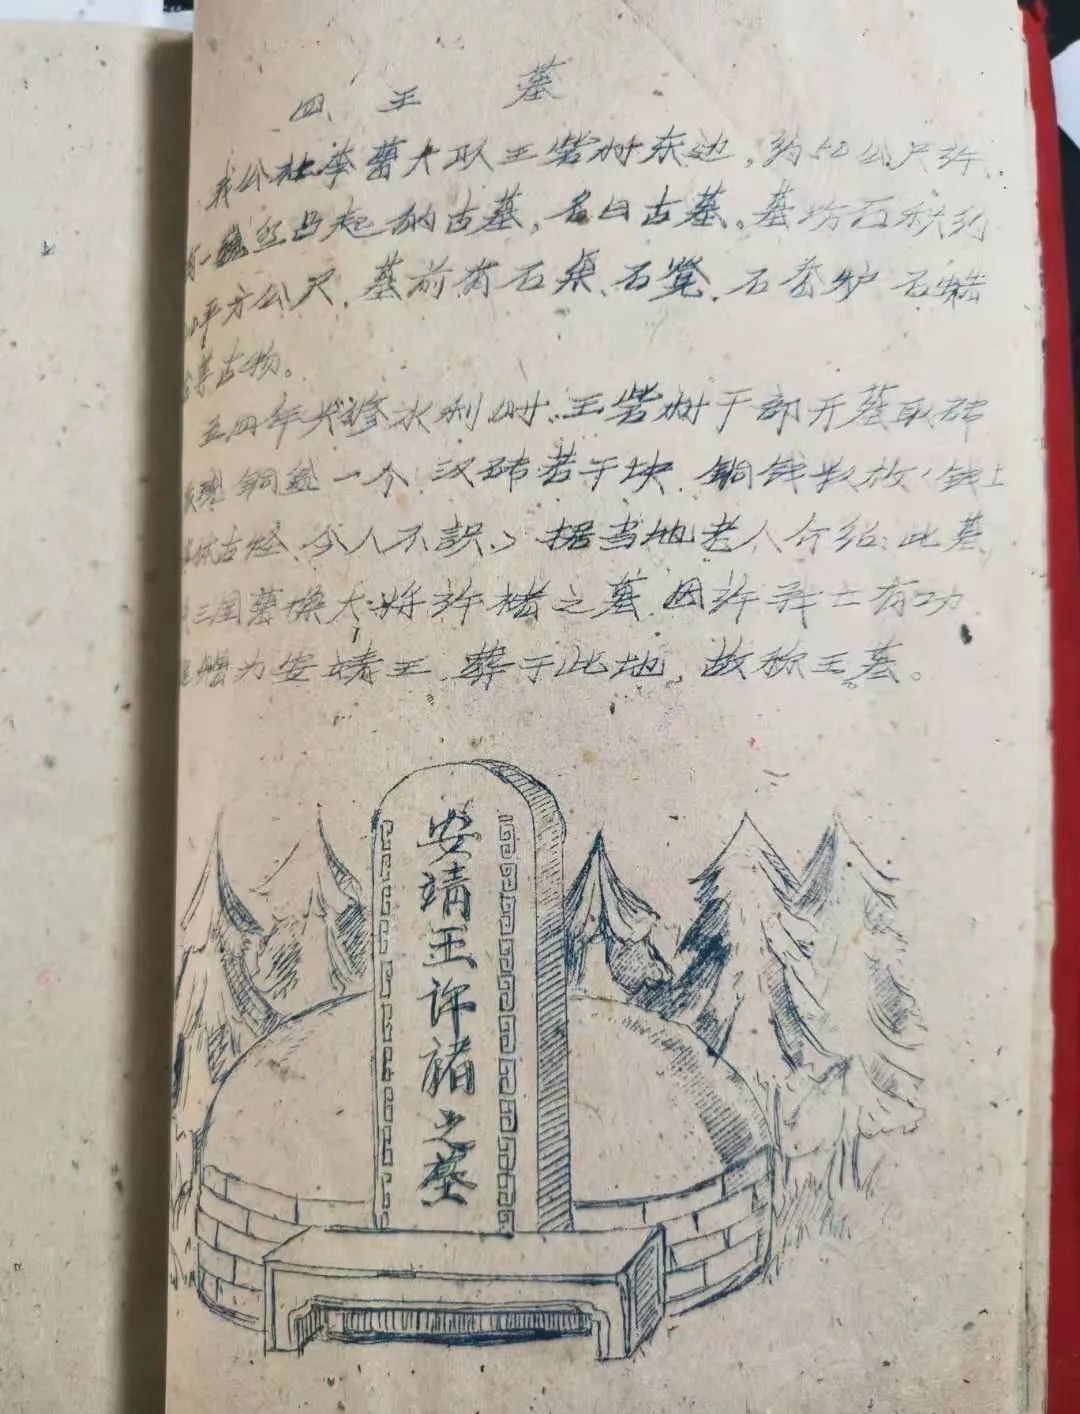 四、王 墓
我公社李蕾大队王砦树东边,约50公尺许,
有一凸起的古墓,名曰古墓。墓坊石积约
平方公尺,墓前有石桌、石凳、石香炉、石蜡
等古物。
五四年兴修水利时,王砦树干部开墓取砖
发现铜盆一个,汉砖若干块,铜钱数放(钱上
体古怪,今人不识)据当地老人介绍:此墓
三国大将许楮之墓,因许有功
赠为安靖王,葬于此地,故称王墓。
安靖王许褚之墓